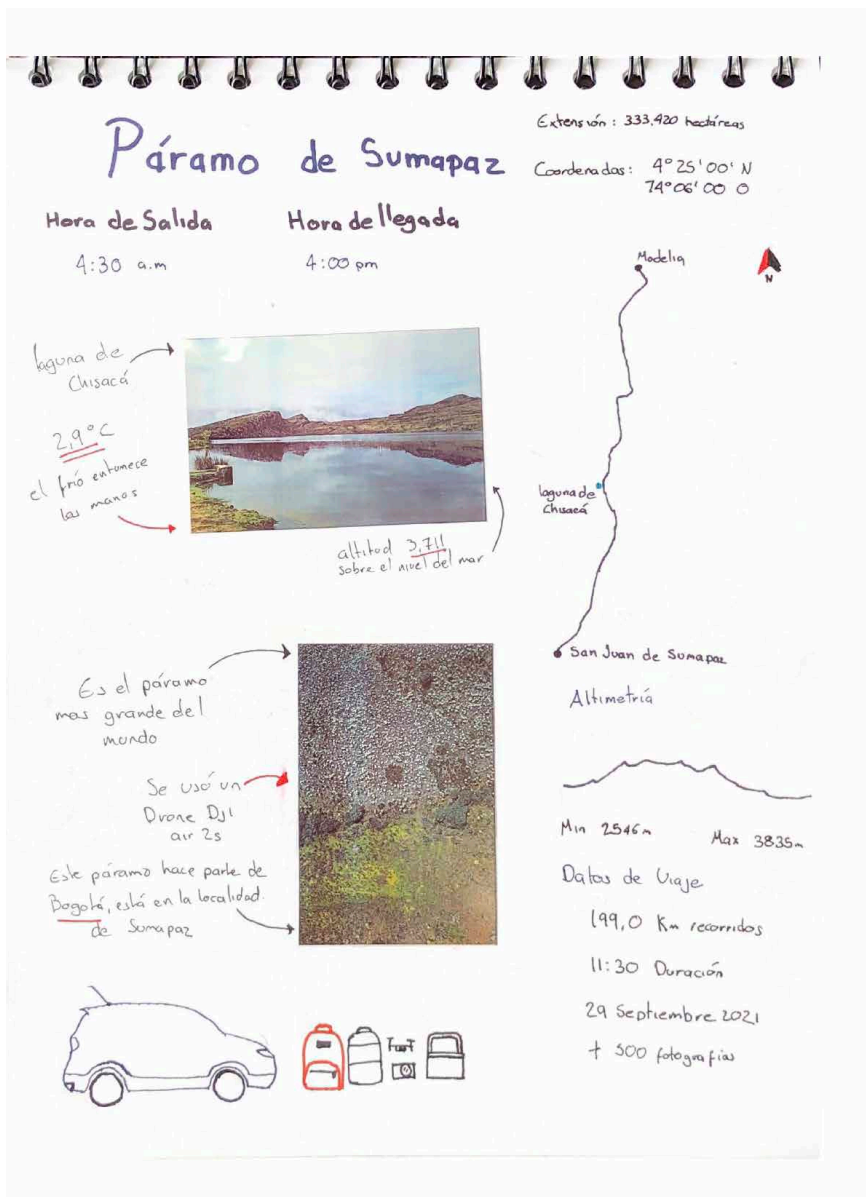 Páramo de Sumapaz
Extensión : 333.420 hectáreas
Coordenadas: 4°25'00' N
74°06'00 O
Hora de Salida
Hora de llegada
4:30 a.m
4:00 pm
Modelia
N
laguna de
Chisacá
2,9°C
el frió entumece
las manos
altitud 3,711
sobre el nivel del mar
laguna de
Chisacá
San Juan de Sumapaz
Es el páramo
mas grande del
mundo
Se usó un
Drone DJI
air 2s
Este páramo hace parte de
Bogotá, está en la localidad
de Sumapaz
Altimetría
Min 2546m
Max 3835m
Datos de Viaje
199,0 Km recorridos
11:30 Duración
29 Septiembre 2021
+ 500 fotografías